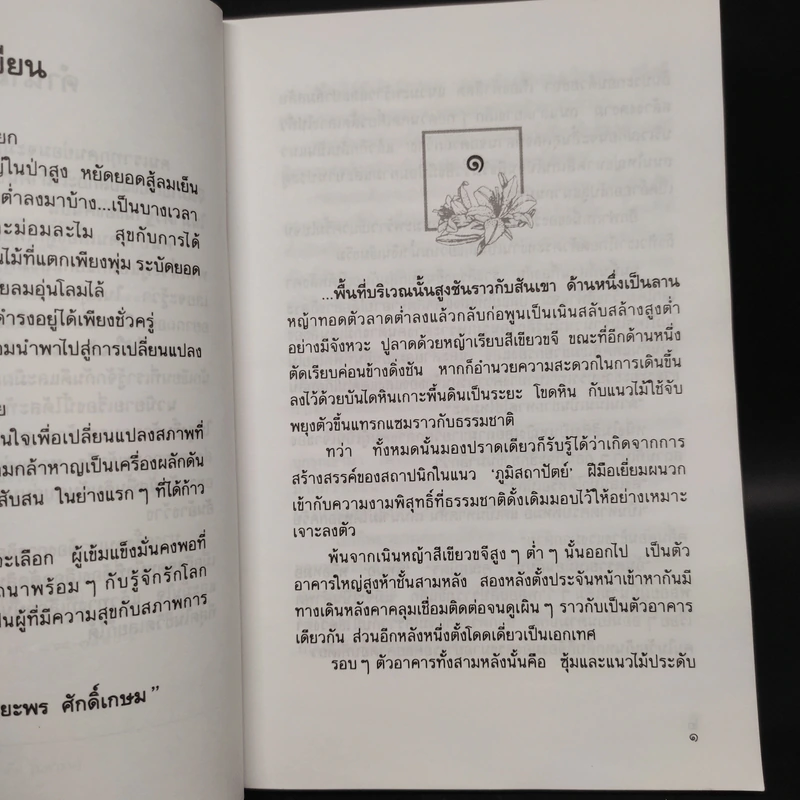 ขียน
ยก
ในป่าสูง หยัดยอดสู้ลมเย็น
ต่ำลงมาบ้าง...เป็นบางเวลา
ะม่อมละไม สุขกับการได้
นไม้ที่แตกเพียงพุ่ม ระบัดยอด
ยลมอุ่นโลมไล้
ดำรงอยู่ได้เพียงชั่วครู่
อมนำพาไปสู่การเปลี่ยนแปลง
ย
นใจเพื่อเปลี่ยนแปลงสภาพที่
มกล้าหาญเป็นเครื่องผลักดัน
สับสน ในย่างแรก ๆ ที่ได้ก้าว
จะเลือก ผู้เข้มแข็งมั่นคงพอที่
ถนาพร้อม ๆ กับรู้จักรักโลก
ป็นผู้ที่มีความสุขกับสภาพการ
ยะพร ศักดิ์เกษม”
๑
...พื้นที่บริเวณนั้นสูงชันราวกับสันเขา ด้านหนึ่งเป็นลาน
หญ้าทอดตัวลาดต่ำลงแล้วกลับก่อพูนเป็นเนินสลับสล้างสูงต่ำ
อย่างมีจังหวะ ปูลาดด้วยหญ้าเรียบสีเขียวขจี ขณะที่อีกด้านหนึ่ง
ตัดเรียบค่อนข้างดิ่งชัน หากก็อำนวยความสะดวกในการเดินขึ้น
ลงไว้ด้วยบันไดหินเกาะพื้นดินเป็นระยะ โขดหิน กับแนวไม้ใช้จับ
พยุงตัวขึ้นแทรกแซมราวกับธรรมชาติ
ทว่า ทั้งหมดนั้นมองปราดเดียวก็รับรู้ได้ว่าเกิดจากการ
สร้างสรรค์ของสถาปนิกในแนว ‘ภูมิสถาปัตย์’ ฝีมือเยี่ยมผนวก
เข้ากับความงามพิสุทธิ์ที่ธรรมชาติดั้งเดิมมอบไว้ให้อย่างเหมาะ
เจาะลงตัว
พ้นจากเนินหญ้าสีเขียวขจีสูง ๆ ต่ำ ๆ นั้นออกไป เป็นตัว
อาคารใหญ่สูงห้าชั้นสามหลัง สองหลังตั้งประจันหน้าเข้าหากันมี
ทางเดินหลังคาคลุมเชื่อมติดต่อจนดูเผิน ๆ ราวกับเป็นตัวอาคาร
เดียวกัน ส่วนอีกหลังหนึ่งตั้งโดดเดี่ยวเป็นเอกเทศ
รอบ ๆ ตัวอาคารทั้งสามหลังนั้นคือ ซุ้มและแนวไม้ประดับ
๑